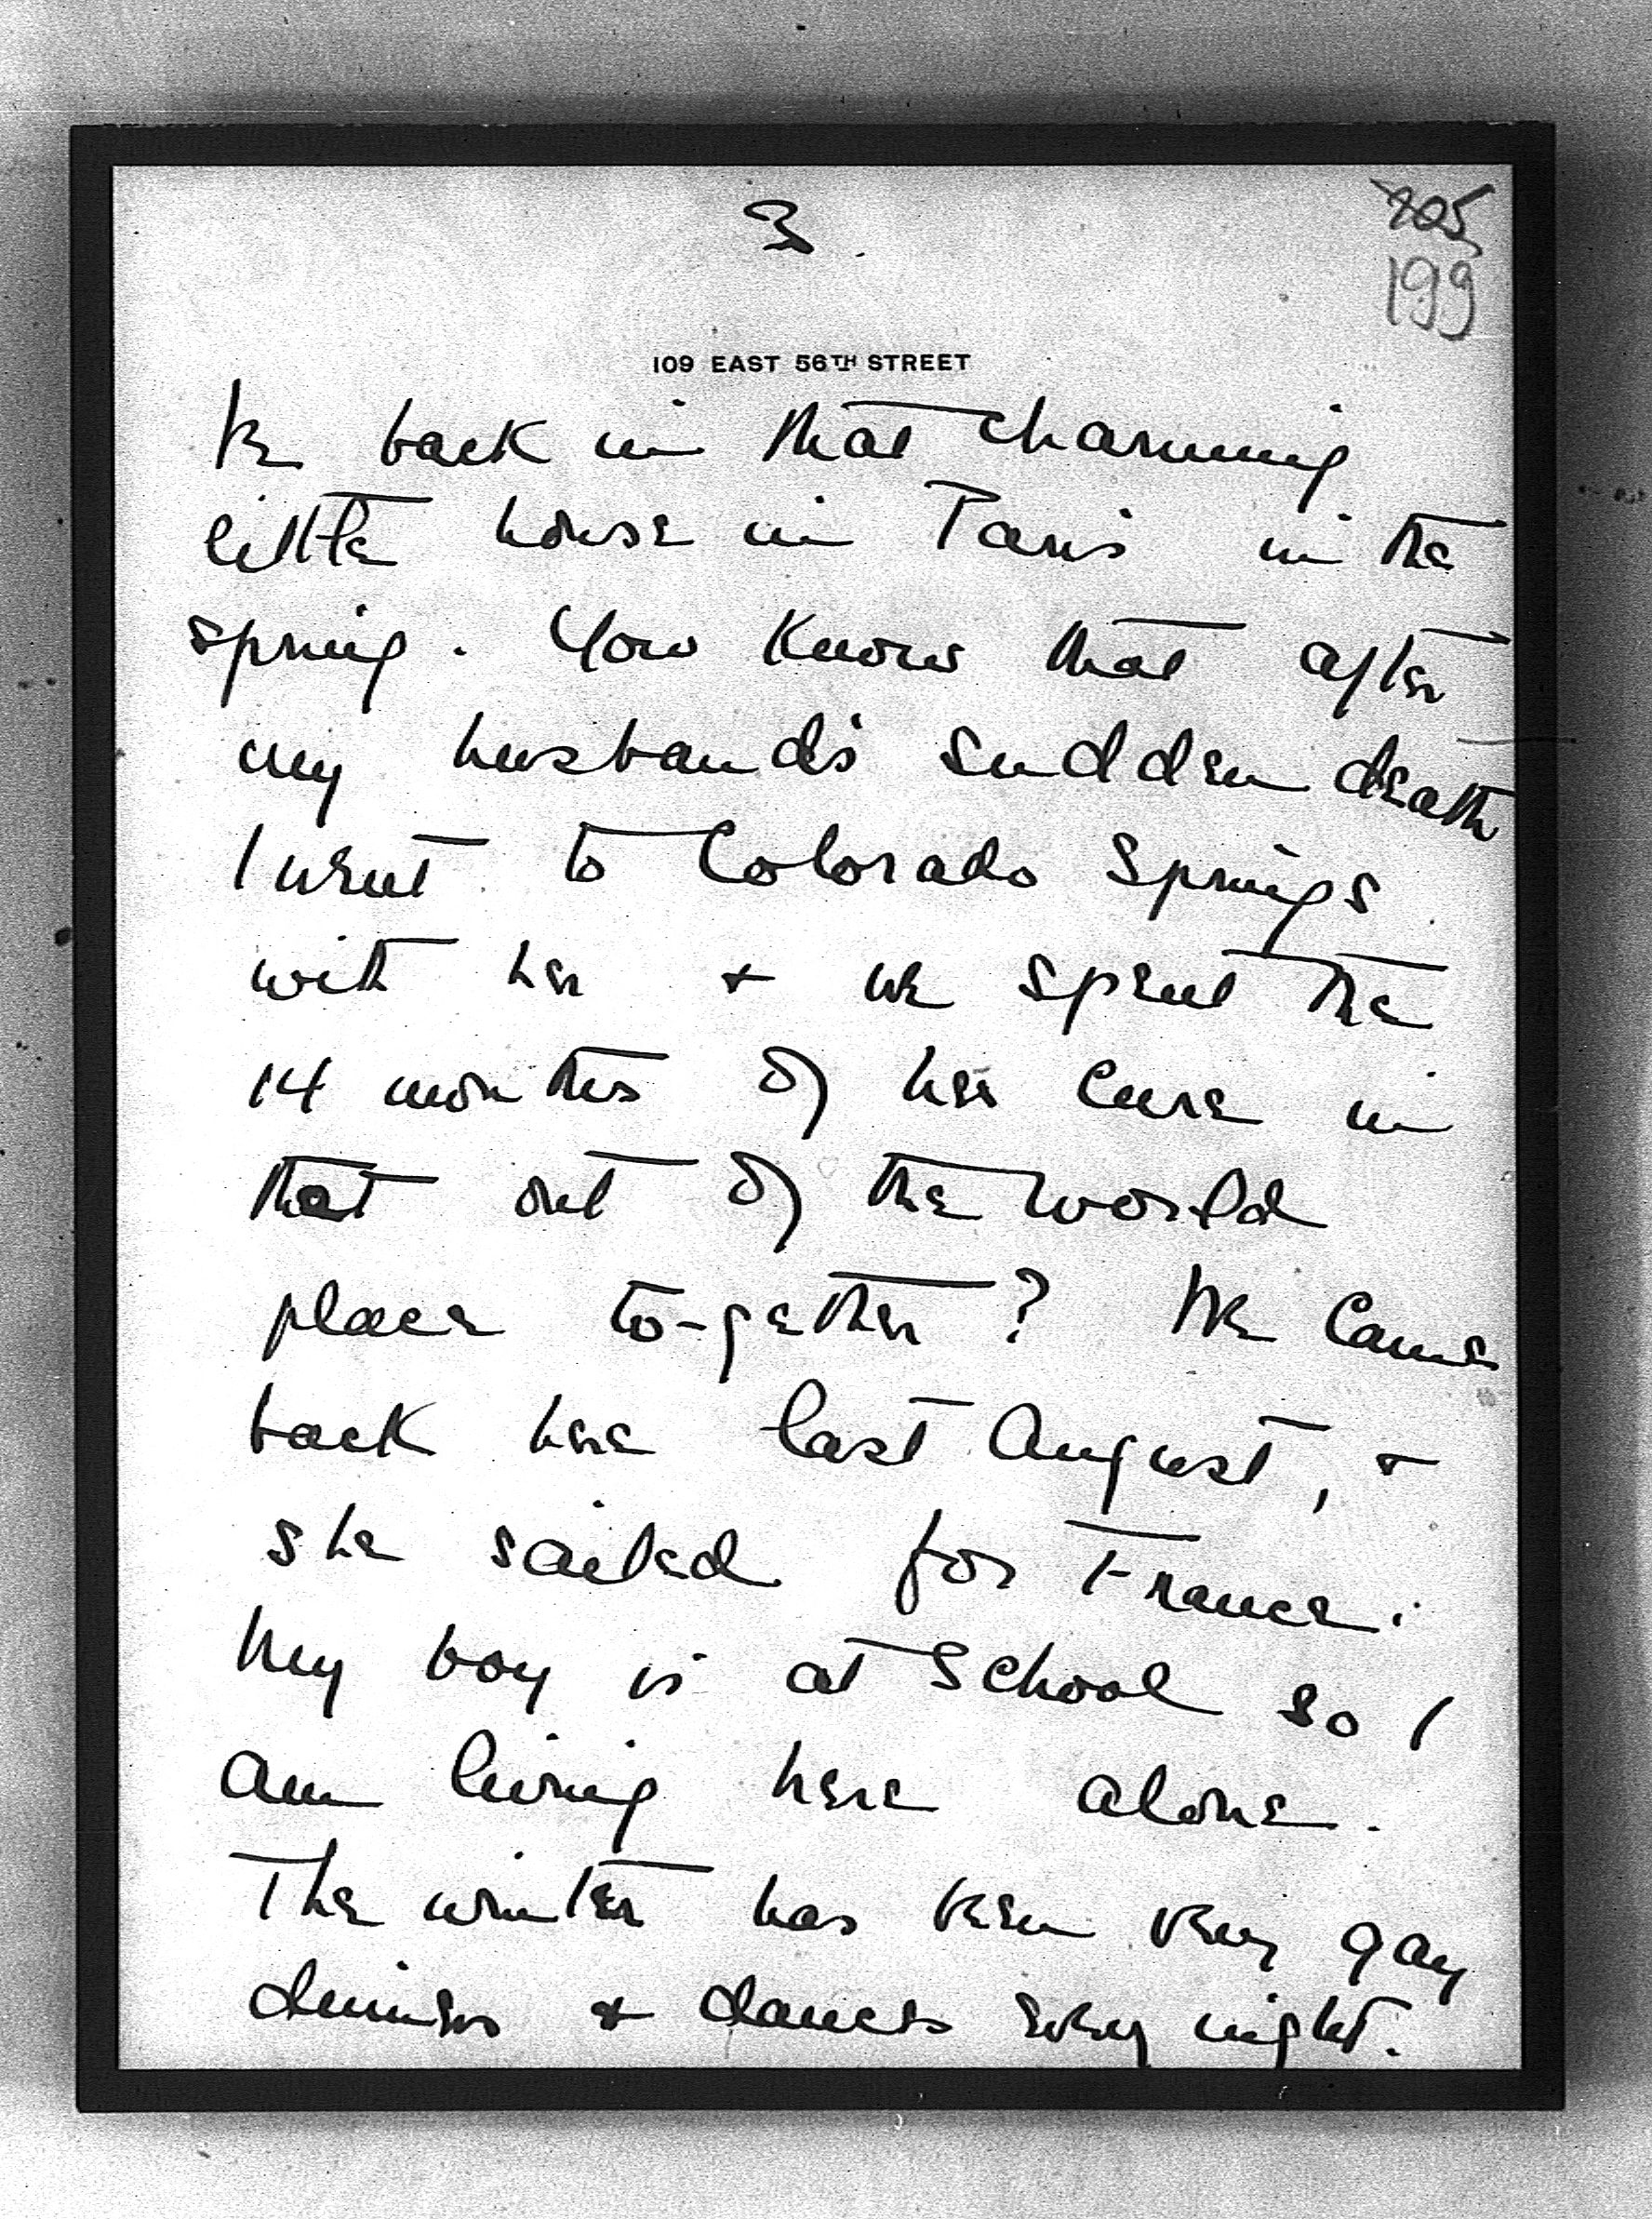 3.
205
199
109 EAST 56TH STREET
be back in that charming
little house in Paris in the
spring. You know that after
my husband's sudden death
I went to Colorado Springs
with her & we spent the
14 months of her cure in
that out of the world
place to-gether? We came
back here last August, &
she sailed for France.
My boy is at school so I
am living here alone.
The winter has been very gay
dinners & dances every night.